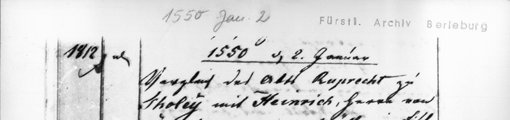 1550 Jan. 2
Fürstl. Archiv Berleburg
1912
1550 d. 2. Januar
Vergleich des Abts Ruprecht zu
Tholey mit Heinrich, Herrn von